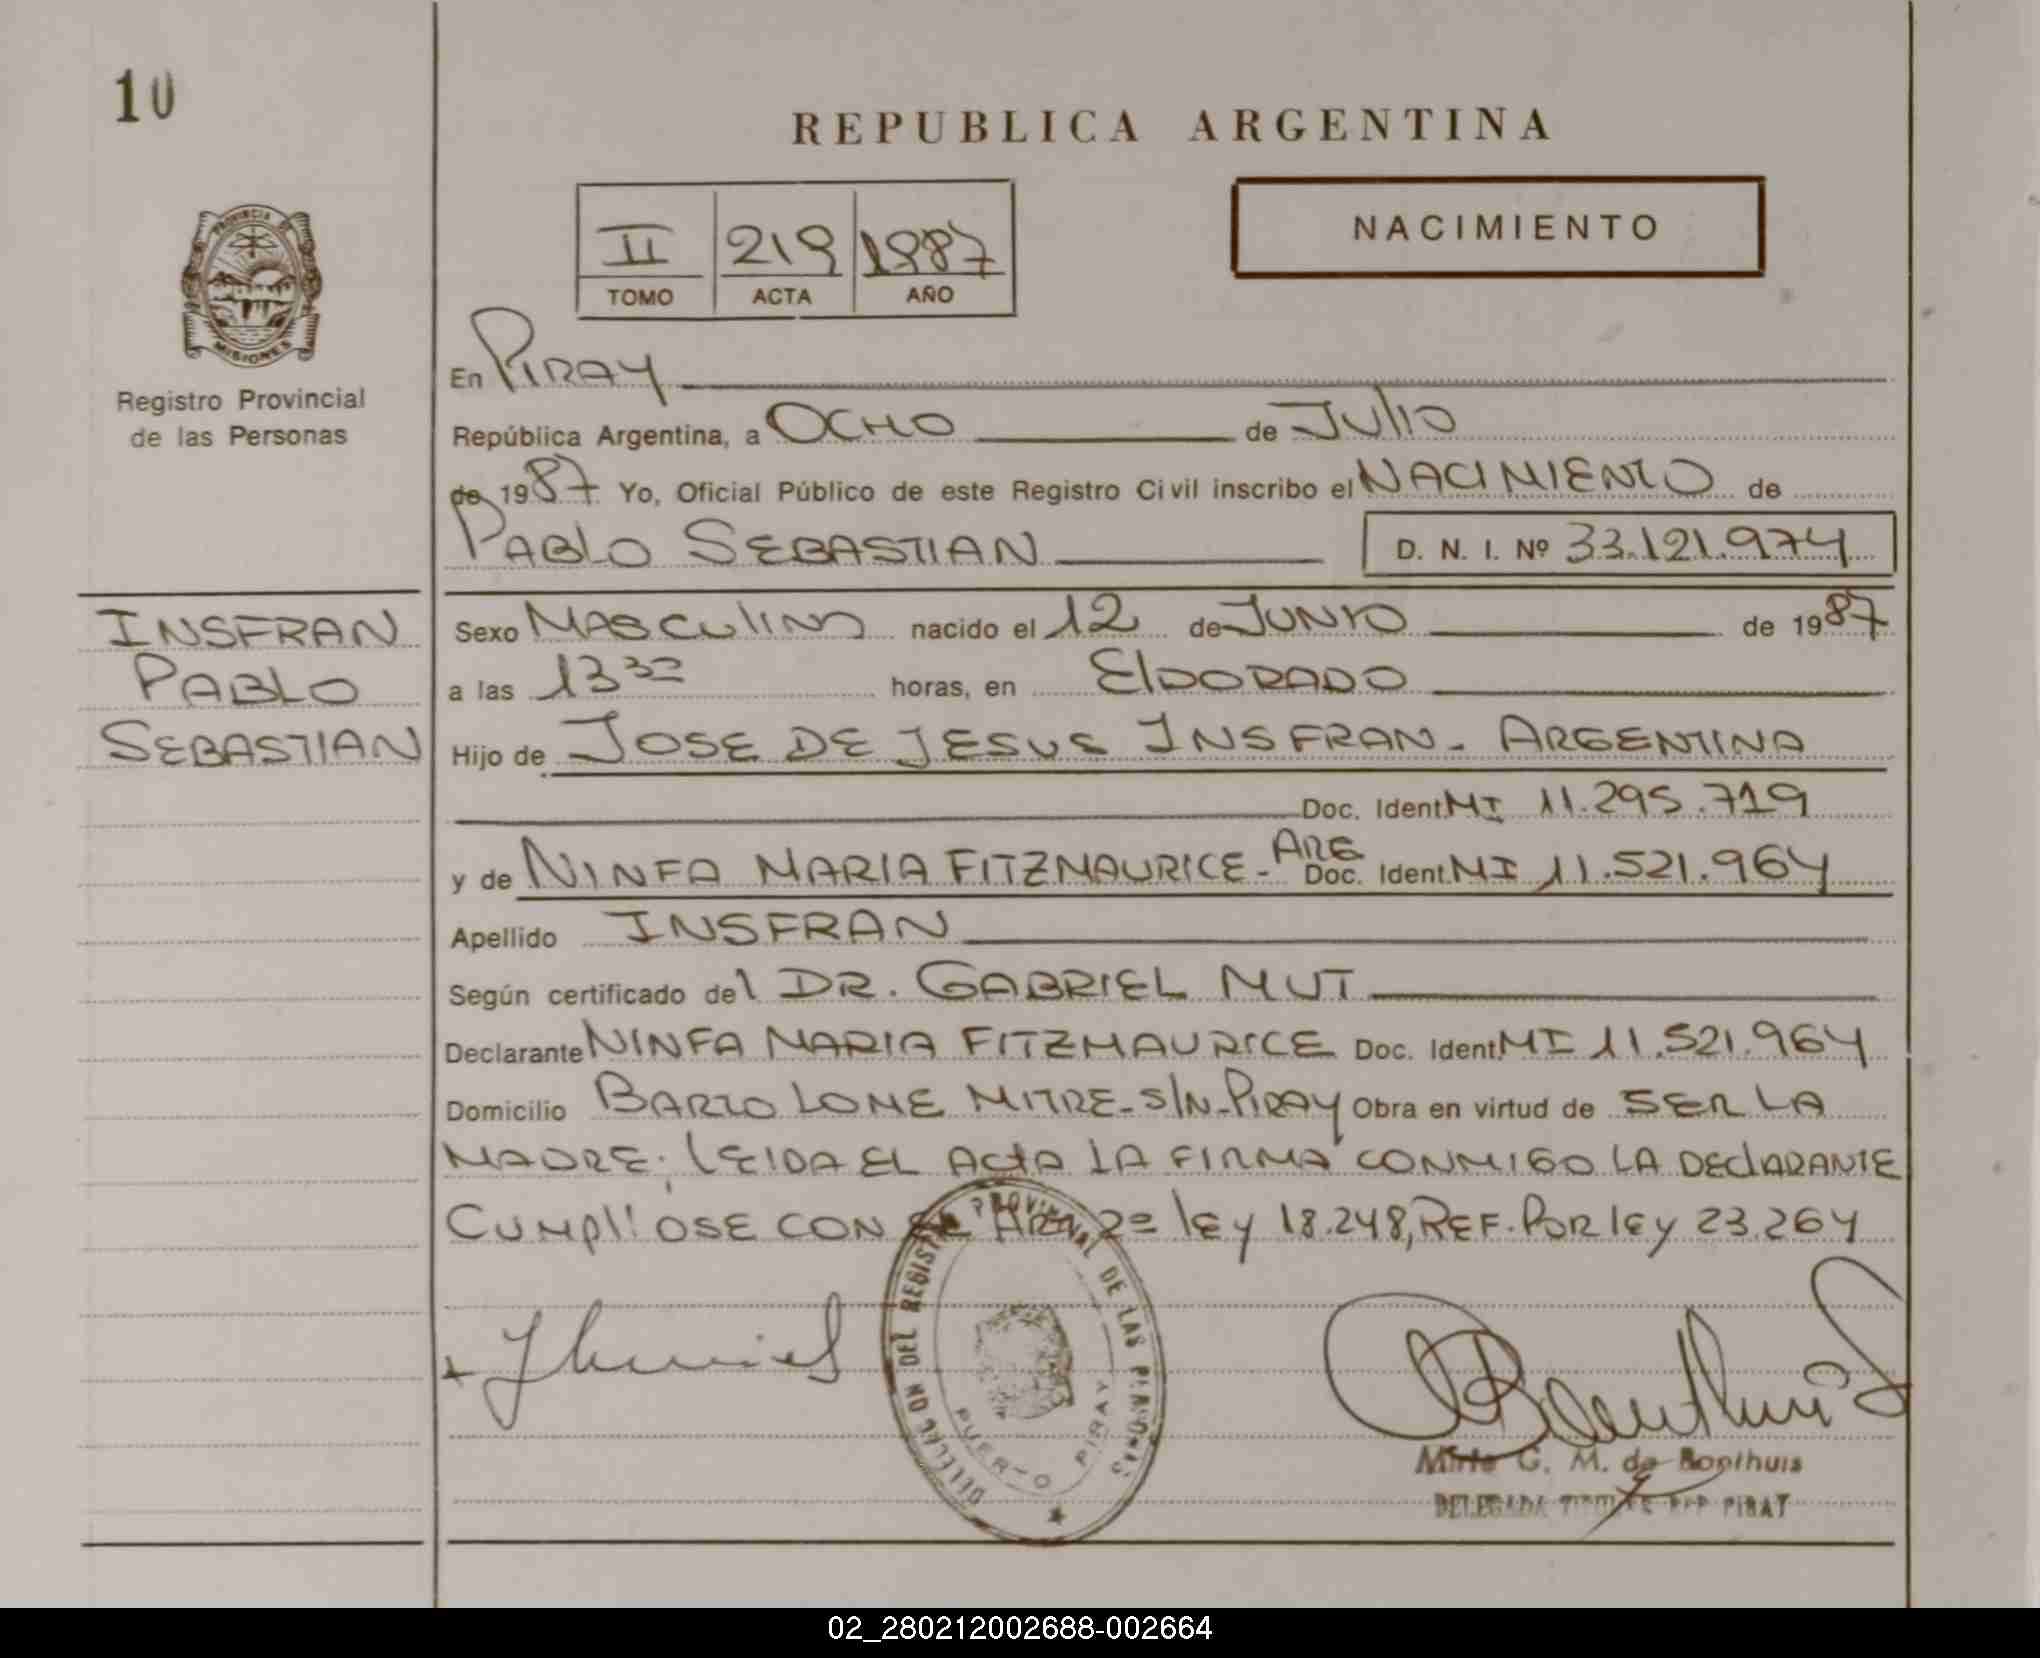 10
REPUBLICA ARGENTINA
NACIMIENTO
II 219 1987
TOMO ACTA AÑO
PROVINCIA DE
MISIONES
Registro Provincial
de las Personas
En PIRAY
República Argentina, a OCHO de JULIO
de 1987 Yo, Oficial Público de este Registro Civil inscribo el NACIMIENTO de
PABLO SEBASTIAN D. N. I. Nº 33.121.974
INSFRAN
PABLO
SEBASTIAN
Sexo MASCULINO nacido el 12 de JUNIO de 1987
a las 13 30 horas, en ELDORADO
Hijo de JOSE DE JESUS INSFRAN - ARGENTINA
Doc. Ident. MI 11.295.719
y de NINFA MARIA FITZMAURICE - ARG Doc. Ident. MI 11.521.964
Apellido INSFRAN
Según certificado del DR. GABRIEL MUT
Declarante NINFA MARIA FITZMAURICE Doc. Ident. MI 11.521.964
Domicilio BARTOLOME MITRE - S/N - PIRAY Obra en virtud de SER LA
MADRE. LEIDA EL ACTA LA FIRMA CONMIGO LA DECLARANTE
CUMPLIOSE CON EL ART. 2º ley 18.248, REF. POR ley 23.264
DEL REGISTRO PROVINCIAL DE LAS PERSONAS
PUERTO PIRAY
G. M. de Bonthuis
DELEGADA TITULAR PIRAY
02_280212002688-002664